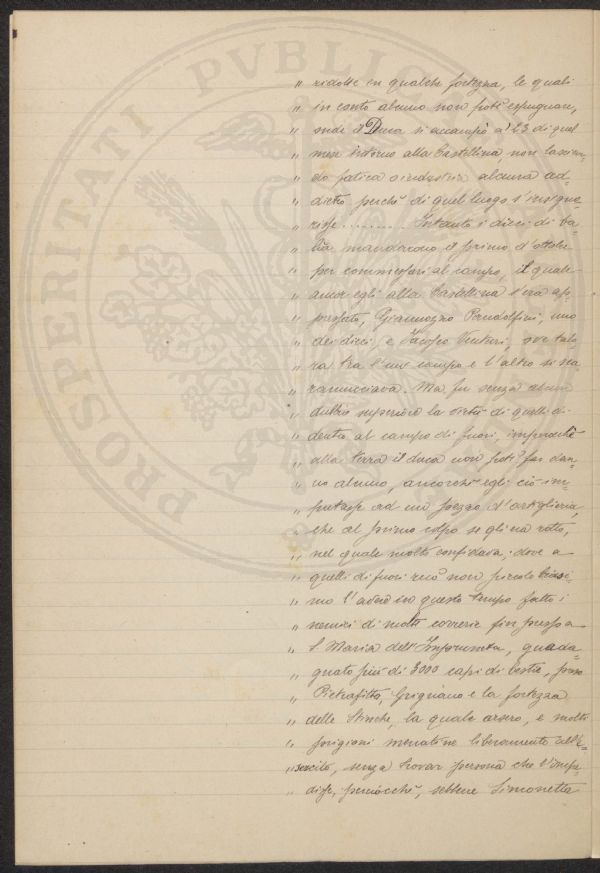 PROSPERITATI PVBLICAE
" ridotte in qualche fortezza, le quali
" in conto alcuno non potè espugnare,
" onde il Duca si accampò a' 23 di quel
" mese intorno alla Castellina, non lascian-
" do fatica o industria alcuna ad-
" dietro perchè di quel luogo s'insigno-
" risse......... Intanto i dieci di ba-
" lìa mandarono il primo d'ottobre
" per commissari al campo, il quale
" ancor egli alla Castellina s'era ap-
" pressato, Giannozzo Pandolfini, uno
" dei dieci, e Jacopo Venturi, ove talo-
" ra tra l'un campo e l'altro si sca-
" ramucciava. Ma fu senza alcun
" dubbio superiore la virtù di quelli di
" dentro al campo di fuori, imperocchè
" alla terra il duca non potè far dan-
" no alcuno, ancorchè egli ciò im-
" putasse ad un pezzo d'artiglieria
" che al primo colpo se gli era rotto,
" nel quale molto confidava; dove a
" quelli di fuori recò non piccolo biasi-
" mo l'avere in questo tempo fatto i
" nemici di molte correrie fin presso a
" S. Maria dell'Impruneta, guada-
" gnato più di 3000 capi di bestie, preso
" Pietrafitta, Grignano e la fortezza
" delle Stinche, la quale arsero, e molti
" prigioni menatine liberamente all'e-
" sercito, senza trovar persona che l'impe-
" disse, perciocchè, sebbene Simonetta